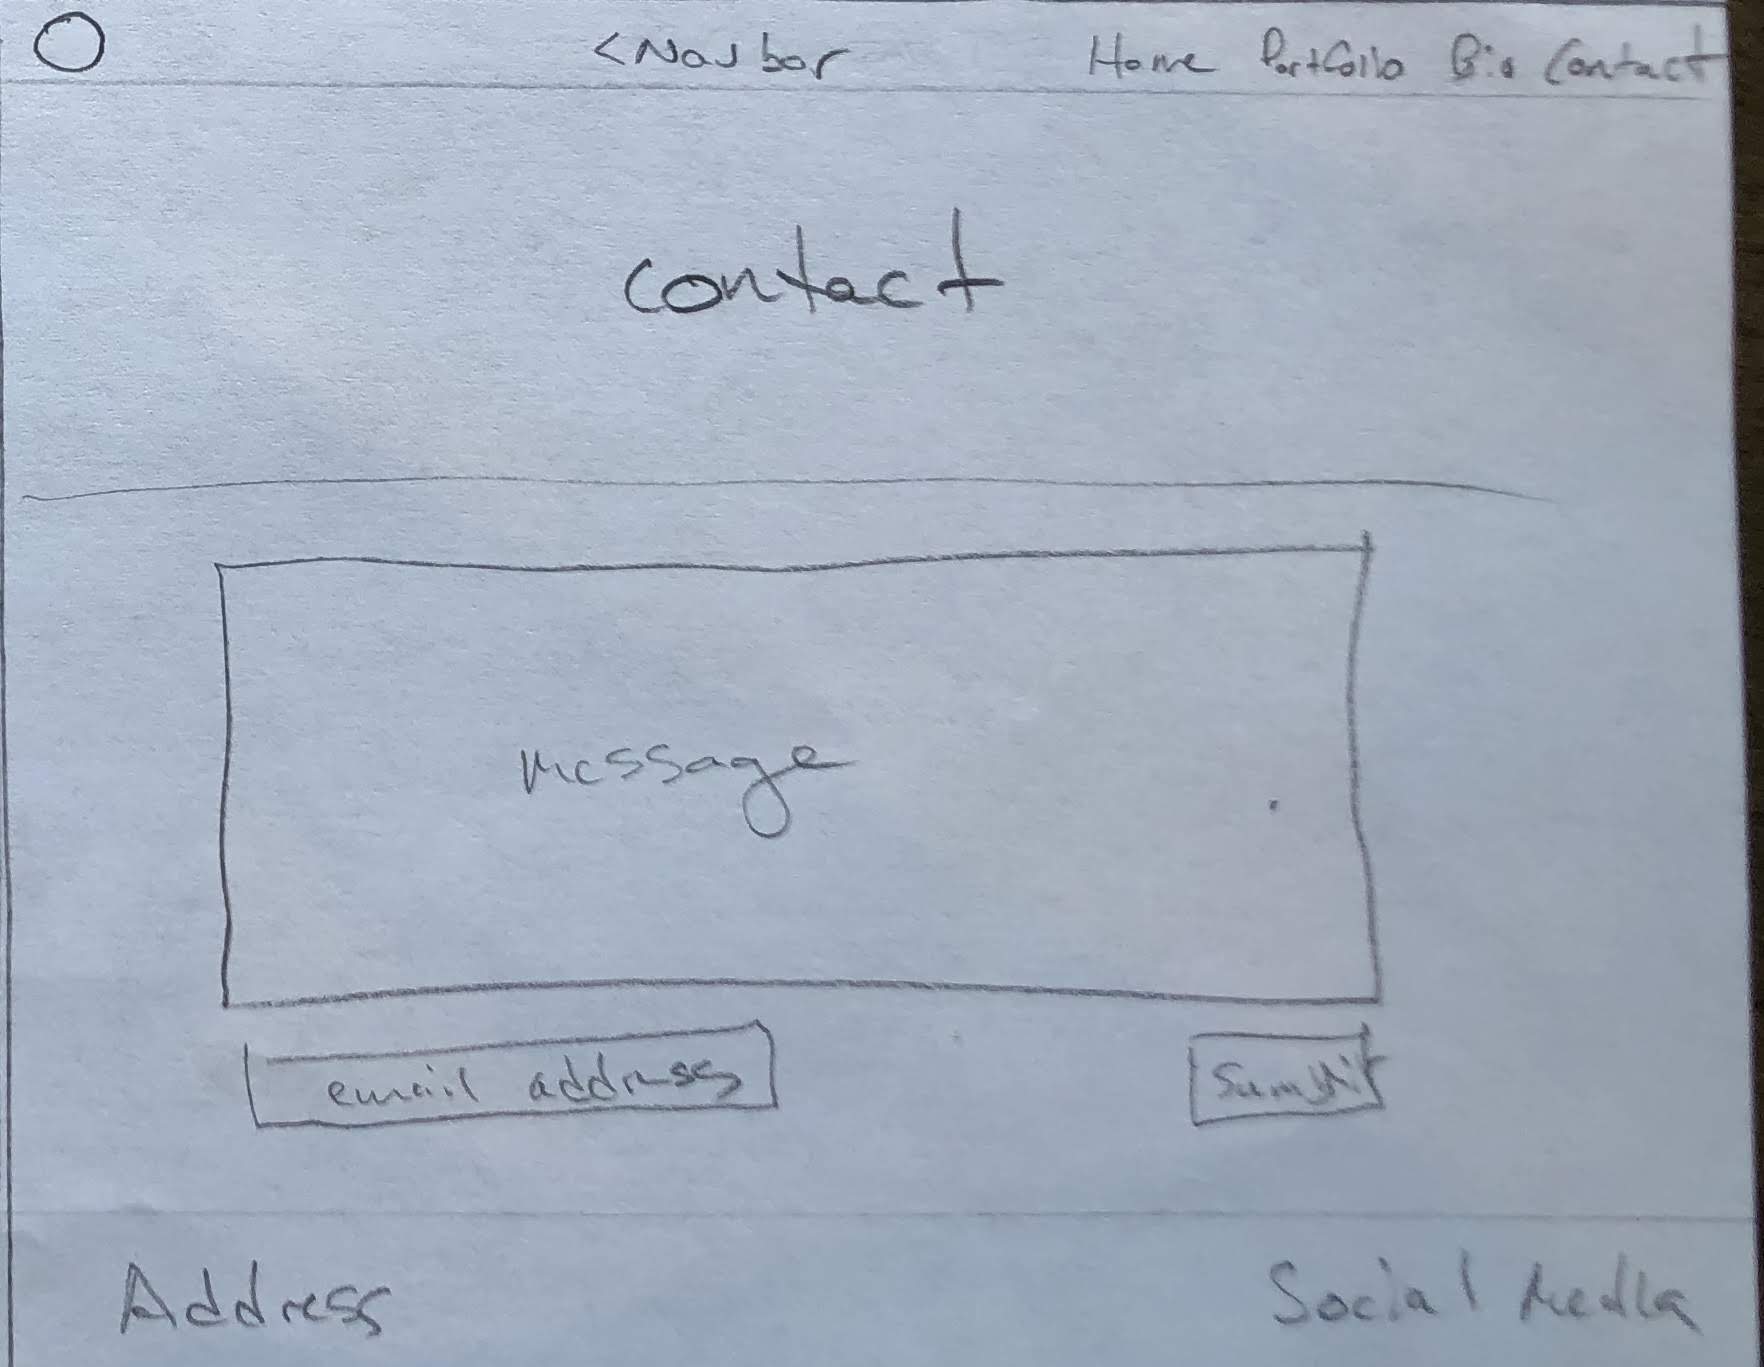 <Navbar Home Portfoilo Bio Contact
Contact
message
email address
Sumbit
Address Social Media